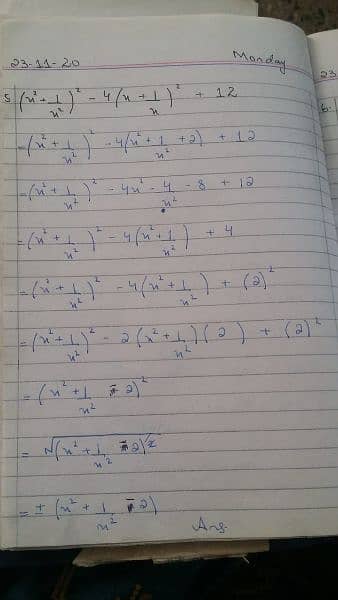 23-11-20 Monday
5 (x² + 1/x²)² - 4(x + 1/x)² + 12
= (x² + 1/x²)² - 4(x² + 1/x² + 2) + 12
= (x² + 1/x²)² - 4x² - 4/x² - 8 + 12
= (x² + 1/x²)² - 4(x² + 1/x²) + 4
= (x² + 1/x²)² - 4(x² + 1/x²) + (2)²
= (x² + 1/x²)² - 2(x² + 1/x²)(2) + (2)²
= (x² + 1/x² - 2)²
= √(x² + 1/x² - 2)²
= ± (x² + 1/x² - 2)
Ans.
23